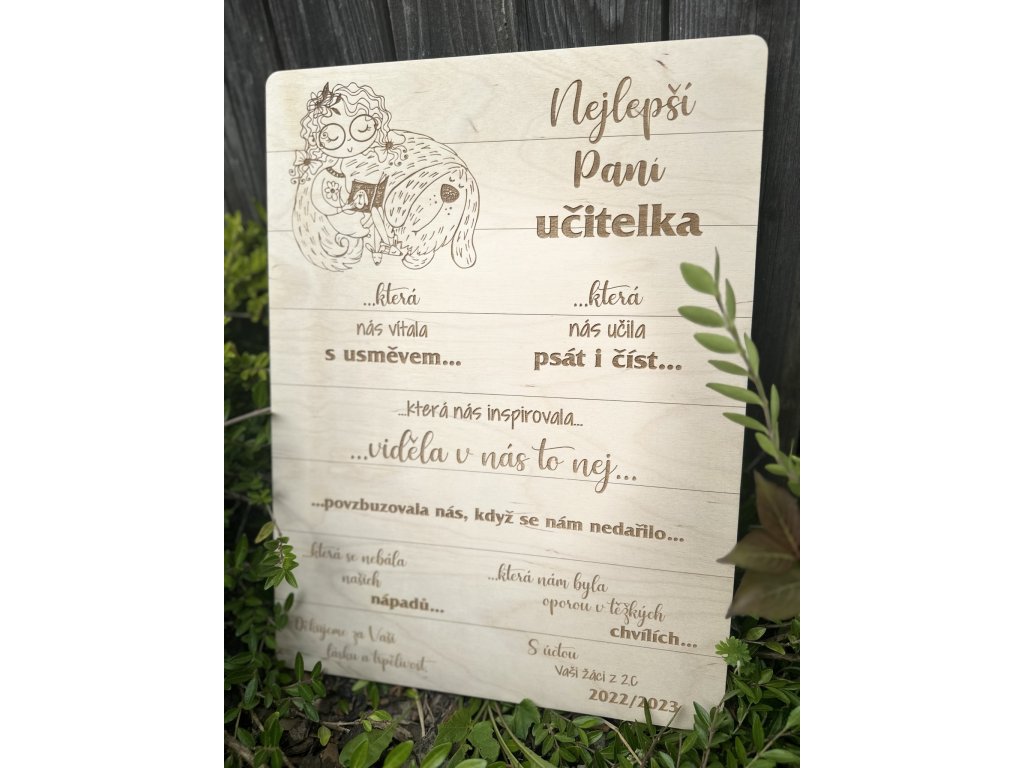 Nejlepší
Paní
učitelka
...která
nás vítala
s usměvem...
...která
nás učila
psát i číst...
...která nás inspirovala...
...viděla v nás to nej...
...povzbuzovala nás, když se nám nedařilo...
...která se nebála
našich
nápadů...
...která nám byla
oporou v těžkých
chvílích...
Děkujeme za Vaši
lásku a trpělivost
S úctou
Vaši žáci z 2.C
2022/2023